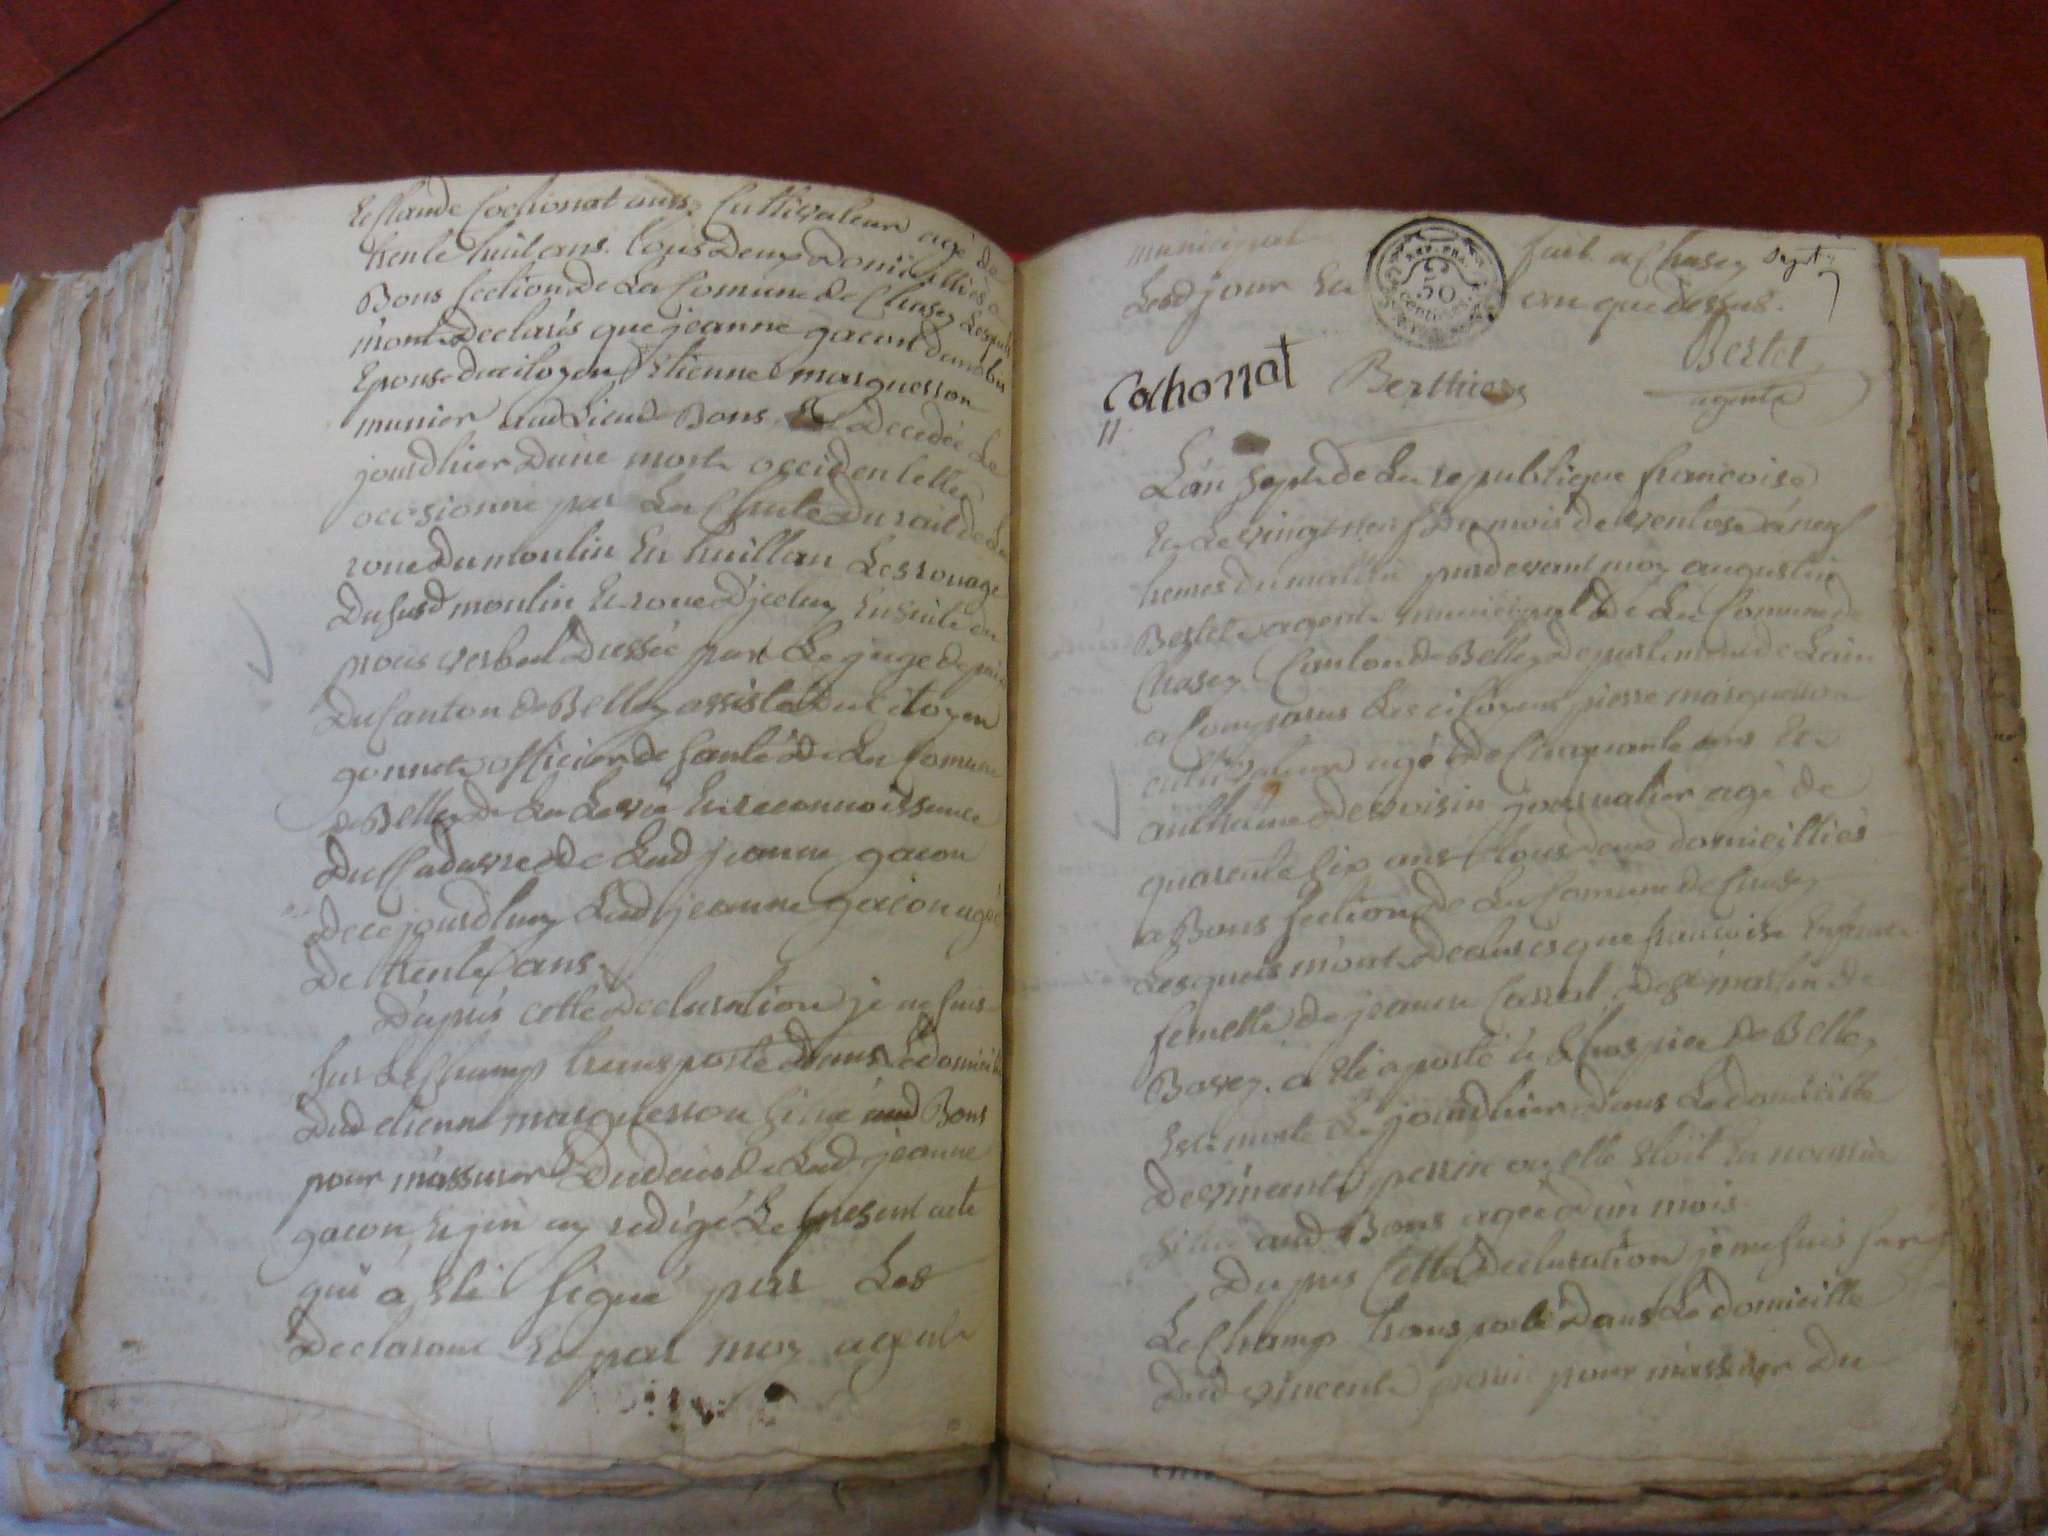 Et Claude Cochonat aussi Cultivateur agé de
trente huit ans. tous deux Domicilliés a
Bons section de La Comune de Chasey Lesquels
m'ont Declarés que jeanne gacon
Epouse du citoyen Etienne marquesson
munier aud Lieu de Bons Decedée Le
jourdhier Dune mort occidentelle
occosionné par La Chute Du rait de La
roue Du moulin En huillan Les rouage
Du susd moulin Et roue D'jceluy Ensuite du
proces verbal Dressée par Le juge de paix
Du Canton de Belley assisté Du Citoyen
gonnet officier de santé De La Comune
de Belley De La Levée Et reconnoissance
Du Cadavre de Lad jeanne gacon
De ce jourdhuy Lad jeanne gacon agé
De trente ans.
D'après cette Declaration je me suis
sur Le Champ transporté Dans Le domicile
Dud etienne marquesson situé aud Bons
pour m'assurer Du deces de Lad jeanne
gacon, Et j'en ay redigé Le present acte
qui a Eté signé par Les
Declarant Et par moy agent
municipal fait a Chasey
Lesd jour Et an que dessus.
Cochonat Berthier Bertet
agent
11
L'an sept de La republique francoise
Et Le vingt neuf Du mois de ventose a neuf
heures du matin pardevant moy augustin
Bertet agent municipal de La Comune de
Chasey Canton de Belley Departement de Lain
a Comparus Les citoyens pierre marquesson
cultivateur agé de Cinquante ans Et
anthelme Dervoisin journalier agé de
quarente six ans tous deux domicilliés
a Bons section de La Comune de Chasey
Lesquels m'ont Declarés que francoise Enfant
femelle de jeanne Carrel De St martin de
Bavey. a Eté aporté a Lhospice de Belley
Est morte Le jourdhier Dans Le domicille
De vincent perrin ou elle Etoit En nourrice
situé aud Bons agée d'un mois.
Du pres Cette Declaration je me suis sur
Le Champ transporté Dans Le domicille
Dud vincent perrin pour m'assurer Du